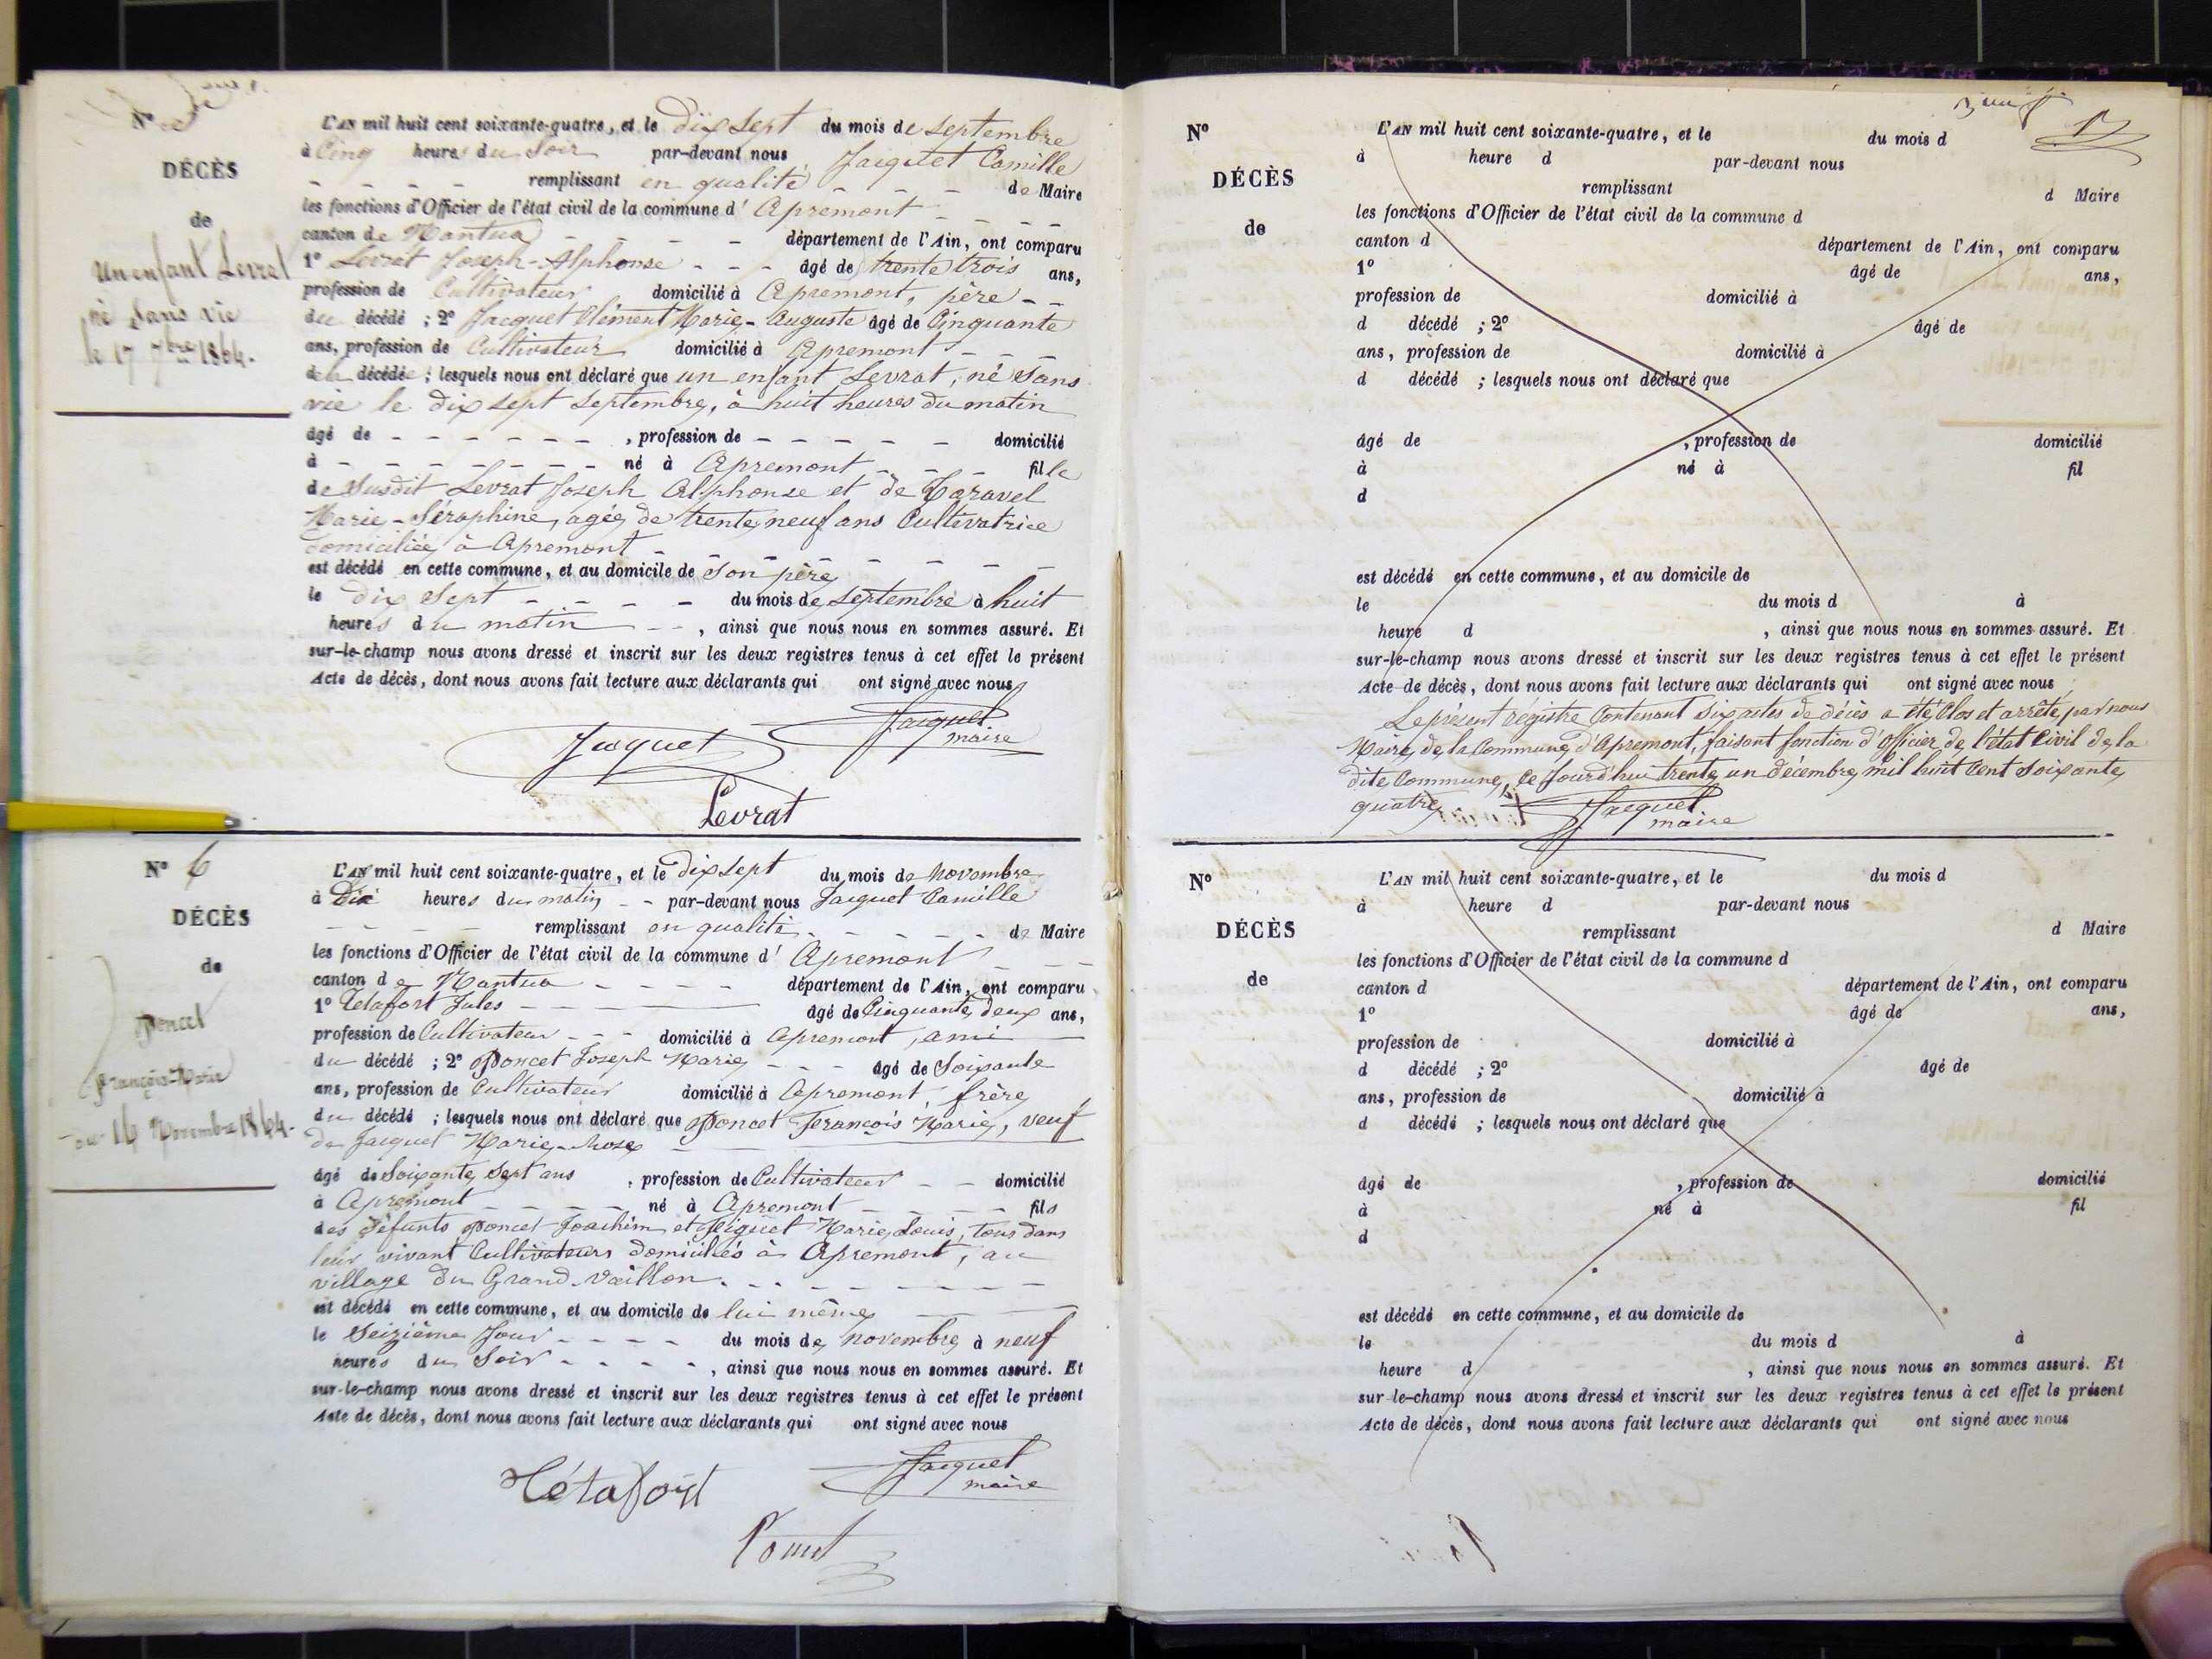 Nº 5
DÉCÈS
de
Un enfant Levrat
né sans vie
le 17 7bre 1864.
L'AN mil huit cent soixante-quatre, et le dix sept du mois de septembre
à Cinq heures du Soir par-devant nous Jacquet Camille
remplissant en qualité de Maire
les fonctions d'Officier de l'état civil de la commune d'Apremont
canton de Nantua département de l'Ain, ont comparu
1º Levrat Joseph-Alphonse âgé de trente trois ans,
profession de Cultivateur domicilié à Apremont, père
du décédé ; 2º Jacquet Clément Marie-Auguste âgé de Cinquante
ans, profession de Cultivateur domicilié à Apremont
décédé ; lesquels nous ont déclaré que un enfant Levrat, né sans
vie le dix sept septembre, à huit heures du matin
âgé de , profession de domicilié
à né à Apremont fil
de Susdit Levrat Joseph Alphonse et de Caravel
Marie-Séraphine, agée de trente neuf ans Cultivatrice
domiciliée à Apremont
est décédé en cette commune, et au domicile de son père
le dix sept du mois de septembre à huit
heures du matin , ainsi que nous nous en sommes assuré. Et
sur-le-champ nous avons dressé et inscrit sur les deux registres tenus à cet effet le présent
Acte de décès, dont nous avons fait lecture aux déclarants qui ont signé avec nous
Jacquet Jacquet
maire
Levrat
Nº 6
DÉCÈS
de
Poncet
François-Marie
du 16 Novembre 1864.
L'AN mil huit cent soixante-quatre, et le dix sept du mois de Novembre
à Dix heures du matin par-devant nous Jacquet Camille
remplissant en qualité de Maire
les fonctions d'Officier de l'état civil de la commune d'Apremont
canton de Nantua département de l'Ain, ont comparu
1º Létafort Jules âgé de Cinquante deux ans,
profession de Cultivateur domicilié à Apremont, ami
du décédé ; 2º Poncet Joseph Marie âgé de Soixante
ans, profession de Cultivateur domicilié à Apremont, frère
du décédé ; lesquels nous ont déclaré que Poncet François Marie, veuf
de Jacquet Marie-Rose
âgé de Soixante sept ans , profession de Cultivateur domicilié
à Apremont né à Apremont fils
des défunts Poncet Joachim et Marie Louis, tous dans
leur vivant Cultivateurs domiciliés à Apremont, au
village du Grand-Vaillon.
est décédé en cette commune, et au domicile de lui même
le Seizième Jour du mois de novembre à neuf
heures du Soir , ainsi que nous nous en sommes assuré. Et
sur-le-champ nous avons dressé et inscrit sur les deux registres tenus à cet effet le présent
Acte de décès, dont nous avons fait lecture aux déclarants qui ont signé avec nous
Létafort Jacquet
maire
Poncet
Nº
DÉCÈS
de
L'AN mil huit cent soixante-quatre, et le du mois d
à heure d par-devant nous
remplissant d Maire
les fonctions d'Officier de l'état civil de la commune d
canton d département de l'Ain, ont comparu
1º âgé de ans,
profession de domicilié à
d décédé ; 2º âgé de
ans, profession de domicilié à
d décédé ; lesquels nous ont déclaré que
âgé de , profession de domicilié
à né à fil
d
est décédé en cette commune, et au domicile de
le du mois d à
heure d , ainsi que nous nous en sommes assuré. Et
sur-le-champ nous avons dressé et inscrit sur les deux registres tenus à cet effet le présent
Acte de décès, dont nous avons fait lecture aux déclarants qui ont signé avec nous
Le présent régistre Contenant Six actes de décès a été Clos et arrêté par nous
Maire de la Commune d'Apremont, faisant fonction d'officier de l'état Civil de la
dite Commune, Ce Jourd'hui trente un décembre mil huit Cent Soixante
quatre Jacquet
maire
Nº
DÉCÈS
de
L'AN mil huit cent soixante-quatre, et le du mois d
à heure d par-devant nous
remplissant d Maire
les fonctions d'Officier de l'état civil de la commune d
canton d département de l'Ain, ont comparu
1º âgé de ans,
profession de domicilié à
d décédé ; 2º âgé de
ans, profession de domicilié à
d décédé ; lesquels nous ont déclaré que
âgé de , profession de domicilié
à né à fil
d
est décédé en cette commune, et au domicile de
le du mois d à
heure d , ainsi que nous nous en sommes assuré. Et
sur-le-champ nous avons dressé et inscrit sur les deux registres tenus à cet effet le présent
Acte de décès, dont nous avons fait lecture aux déclarants qui ont signé avec nous